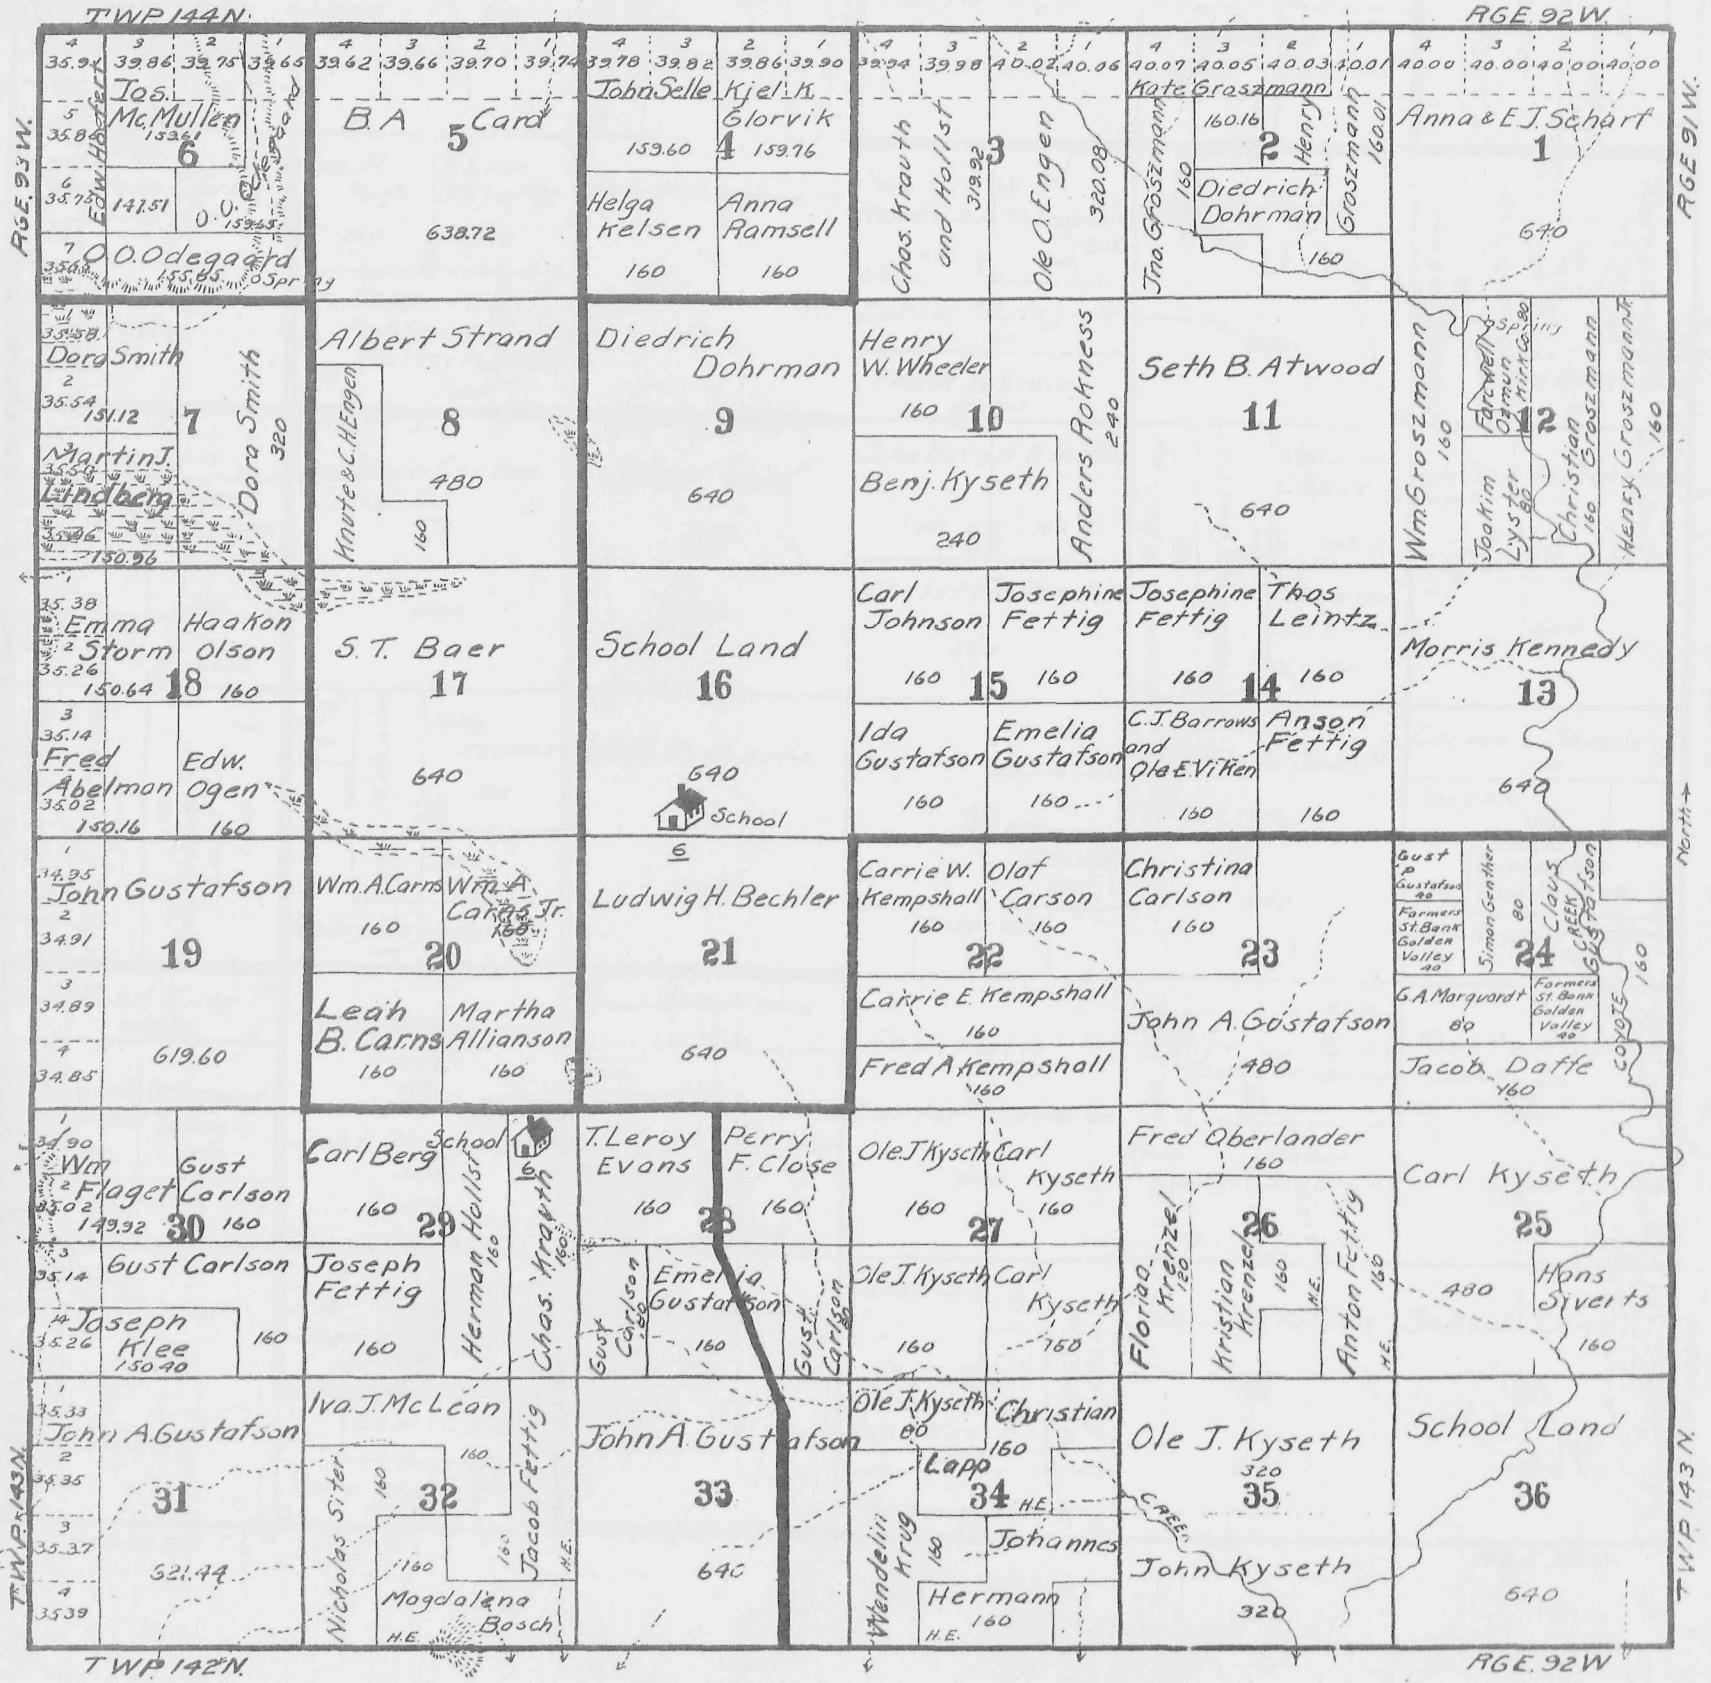 TWP 144 N.
RGE. 92 W.
RGE. 93 W.
RGE. 91 W.
4 3 2 1
35.94 39.86 39.75 39.65
Jos.
McMullen
153.61
5
35.85
6
6
35.75
Edw. Hoffert
147.51
O.O. Odegaard
159.65
7
35.65
O.O. Odegaard
155.85
Spring
4 3 2 1
39.62 39.66 39.70 39.74
B. A. Card
5
638.72
4 3 2 1
39.78 39.82 39.86 39.90
John Selle
159.60
Kjel K.
Glorvik
159.76
4
Helga
Kelsen
160
Anna
Ramsell
160
4 3 2 1
39.94 39.98 40.02 40.06
Chas. Krauth
und Hollst
319.92
3
Ole O. Engen
320.08
4 3 2 1
40.07 40.05 40.03 40.01
Kate Groszmann
160.16
2
Jno. Groszmann
160
Henry
Groszmann
160.01
Diedrich
Dohrman
160
4 3 2 1
40.00 40.00 40.00 40.00
Anna & E.J. Scharf
1
640
1
35.58
Dora Smith
2
35.54
151.12
7
Dora Smith
320
Martin J.
3
35.50
Lindberg
4
35.46
150.96
Albert Strand
8
480
Knute & C.H. Engen
160
Diedrich
Dohrman
9
640
Henry
W. Wheeler
160
10
Anders Rokness
240
Benj. Kyseth
240
Seth B. Atwood
11
640
Wm Groszmann
160
Spring
Farewell
Ozmun
Kirk Co. 80
12
Joakim
Lyster
80
Christian
Groszmann
160
Henry Groszmann Jr.
160
1
35.38
Emma
Storm
2
35.26
150.64
18
Haakon
Olson
160
3
35.14
Fred
Abelman
4
35.02
150.16
Edw.
Ogen
160
S. T. Baer
17
640
School Land
16
640
School
6
Carl
Johnson
160
Josephine
Fettig
160
15
Ida
Gustafson
160
Emelia
Gustafson
160
Josephine
Fettig
160
Thos
Leintz
160
14
C.J. Barrows
and
Ole E. Viken
160
Anson
Fettig
160
Morris Kennedy
13
640
North →
1
34.95
John Gustafson
2
34.91
19
3
34.89
619.60
4
34.85
Wm. A. Carns
160
Wm. A.
Carns Jr.
160
20
Leah
B. Carns
160
Martha
Allianson
160
Ludwig H. Bechler
21
640
Carrie W.
Kempshall
160
Olaf
Carson
160
22
Carrie E. Kempshall
160
Fred A Kempshall
160
Christina
Carlson
160
23
John A. Gustafson
480
Gust
P
Gustafson
40
Farmers
St. Bank
Golden
Valley
40
Simon Genther
80
Claus
Gustafson
CREEK
160
24
G.A. Marquardt
80
Farmers
St. Bank
Golden
Valley
40
COYOTE
Jacob Daffe
160
1
34.90
Wm
Flaget
2
35.02
149.92
30
Gust
Carlson
160
3
35.14
Gust Carlson
160
4
35.26
Joseph
Klee
150.40
Carl Berg
160
School
6
29
Herman Hollst
160
Chas. Krauth
160
Joseph
Fettig
160
T. Leroy
Evans
160
Perry
F. Close
160
28
Gust
Carlson
80
Emelia
Gustafson
160
Gust
Carlson
80
Ole J Kyseth
160
Carl
Kyseth
160
27
Ole J. Kyseth
160
Carl
Kyseth
160
Fred Oberlander
160
Florian
Krenzel
120
26
Kristian
Krenzel
160
H.E.
Anton Fettig
160
H.E.
Carl Kyseth
25
480
Hans
Siverts
160
1
35.33
John A. Gustafson
2
35.35
31
3
35.37
621.44
4
35.39
Iva J. McLean
160
Nicholas Siter
160
32
Jacob Fettig
160
H.E.
160
Magdalena
Bosch
H.E.
John A. Gustafson
33
640
Ole J. Kyseth
80
Christian
160
Lapp
34
H.E.
Wendelin
Krug
160
Johannes
Hermann
160
H.E.
Ole J. Kyseth
320
35
CREEK
John Kyseth
320
School Land
36
640
TWP. 143 N.
TWP. 143 N.
TWP. 142 N.
RGE. 92 W